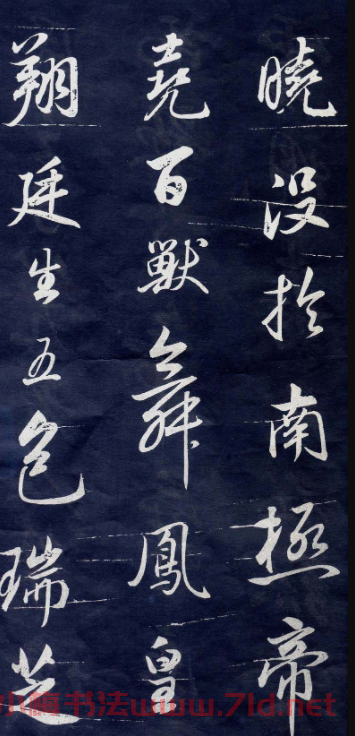 曉没於南極帝
堯百獸舞鳳皇
翔廷生五色瑞芝
小楦书法www.7ld.net